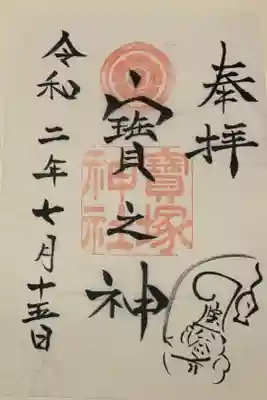 奉拝
寳之神
寳塚神社
令和二年七月十五日